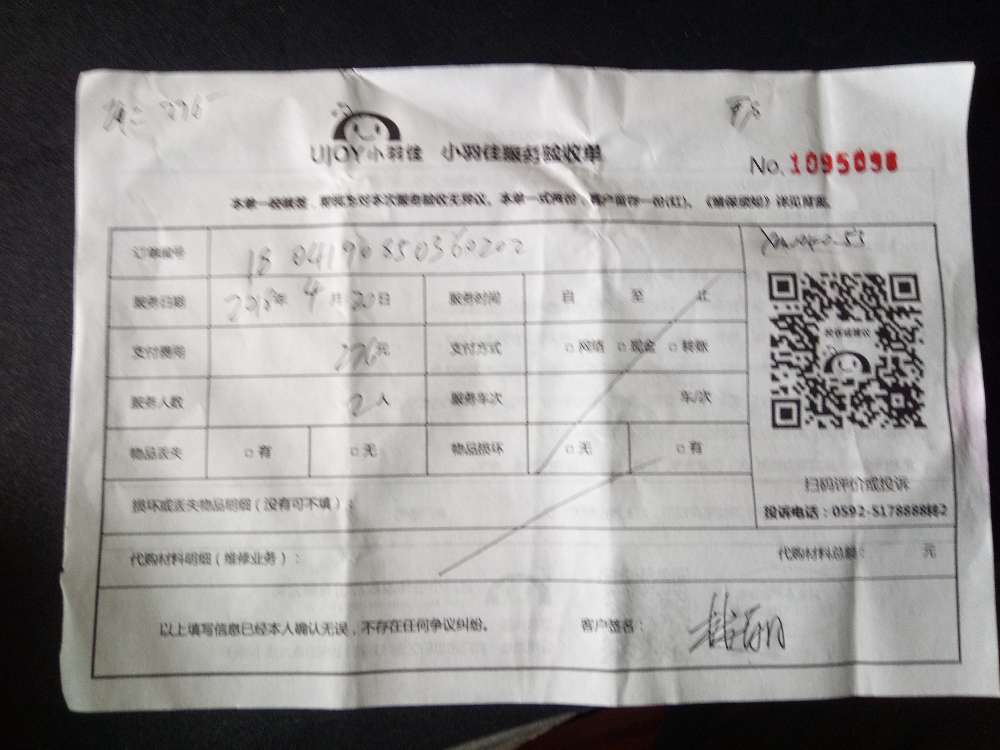 UJOY小羽佳 小羽佳服务验收单
No. 1095098
本单一经签名，即视为对本次服务验收无异议。本单一式两份，客户留存一份(红)。《维保须知》详见背面。
订单编号 18 04190850360202
服务日期 年 4 月 20 日 服务时间 自 至 止
支付费用 元 支付方式 □ 网络 □ 现金 □ 转账
服务人数 2 人 服务车次 车/次
物品丢失 □ 有 □ 无 物品损坏 □ 无 □ 有
扫码评价或投诉
投诉电话：0592-5178888转2
损坏或丢失物品明细（没有可不填）：
代购材料明细（维修业务）： 代购材料总额： 元
以上填写信息已经本人确认无误，不存在任何争议纠纷。 客户签名：